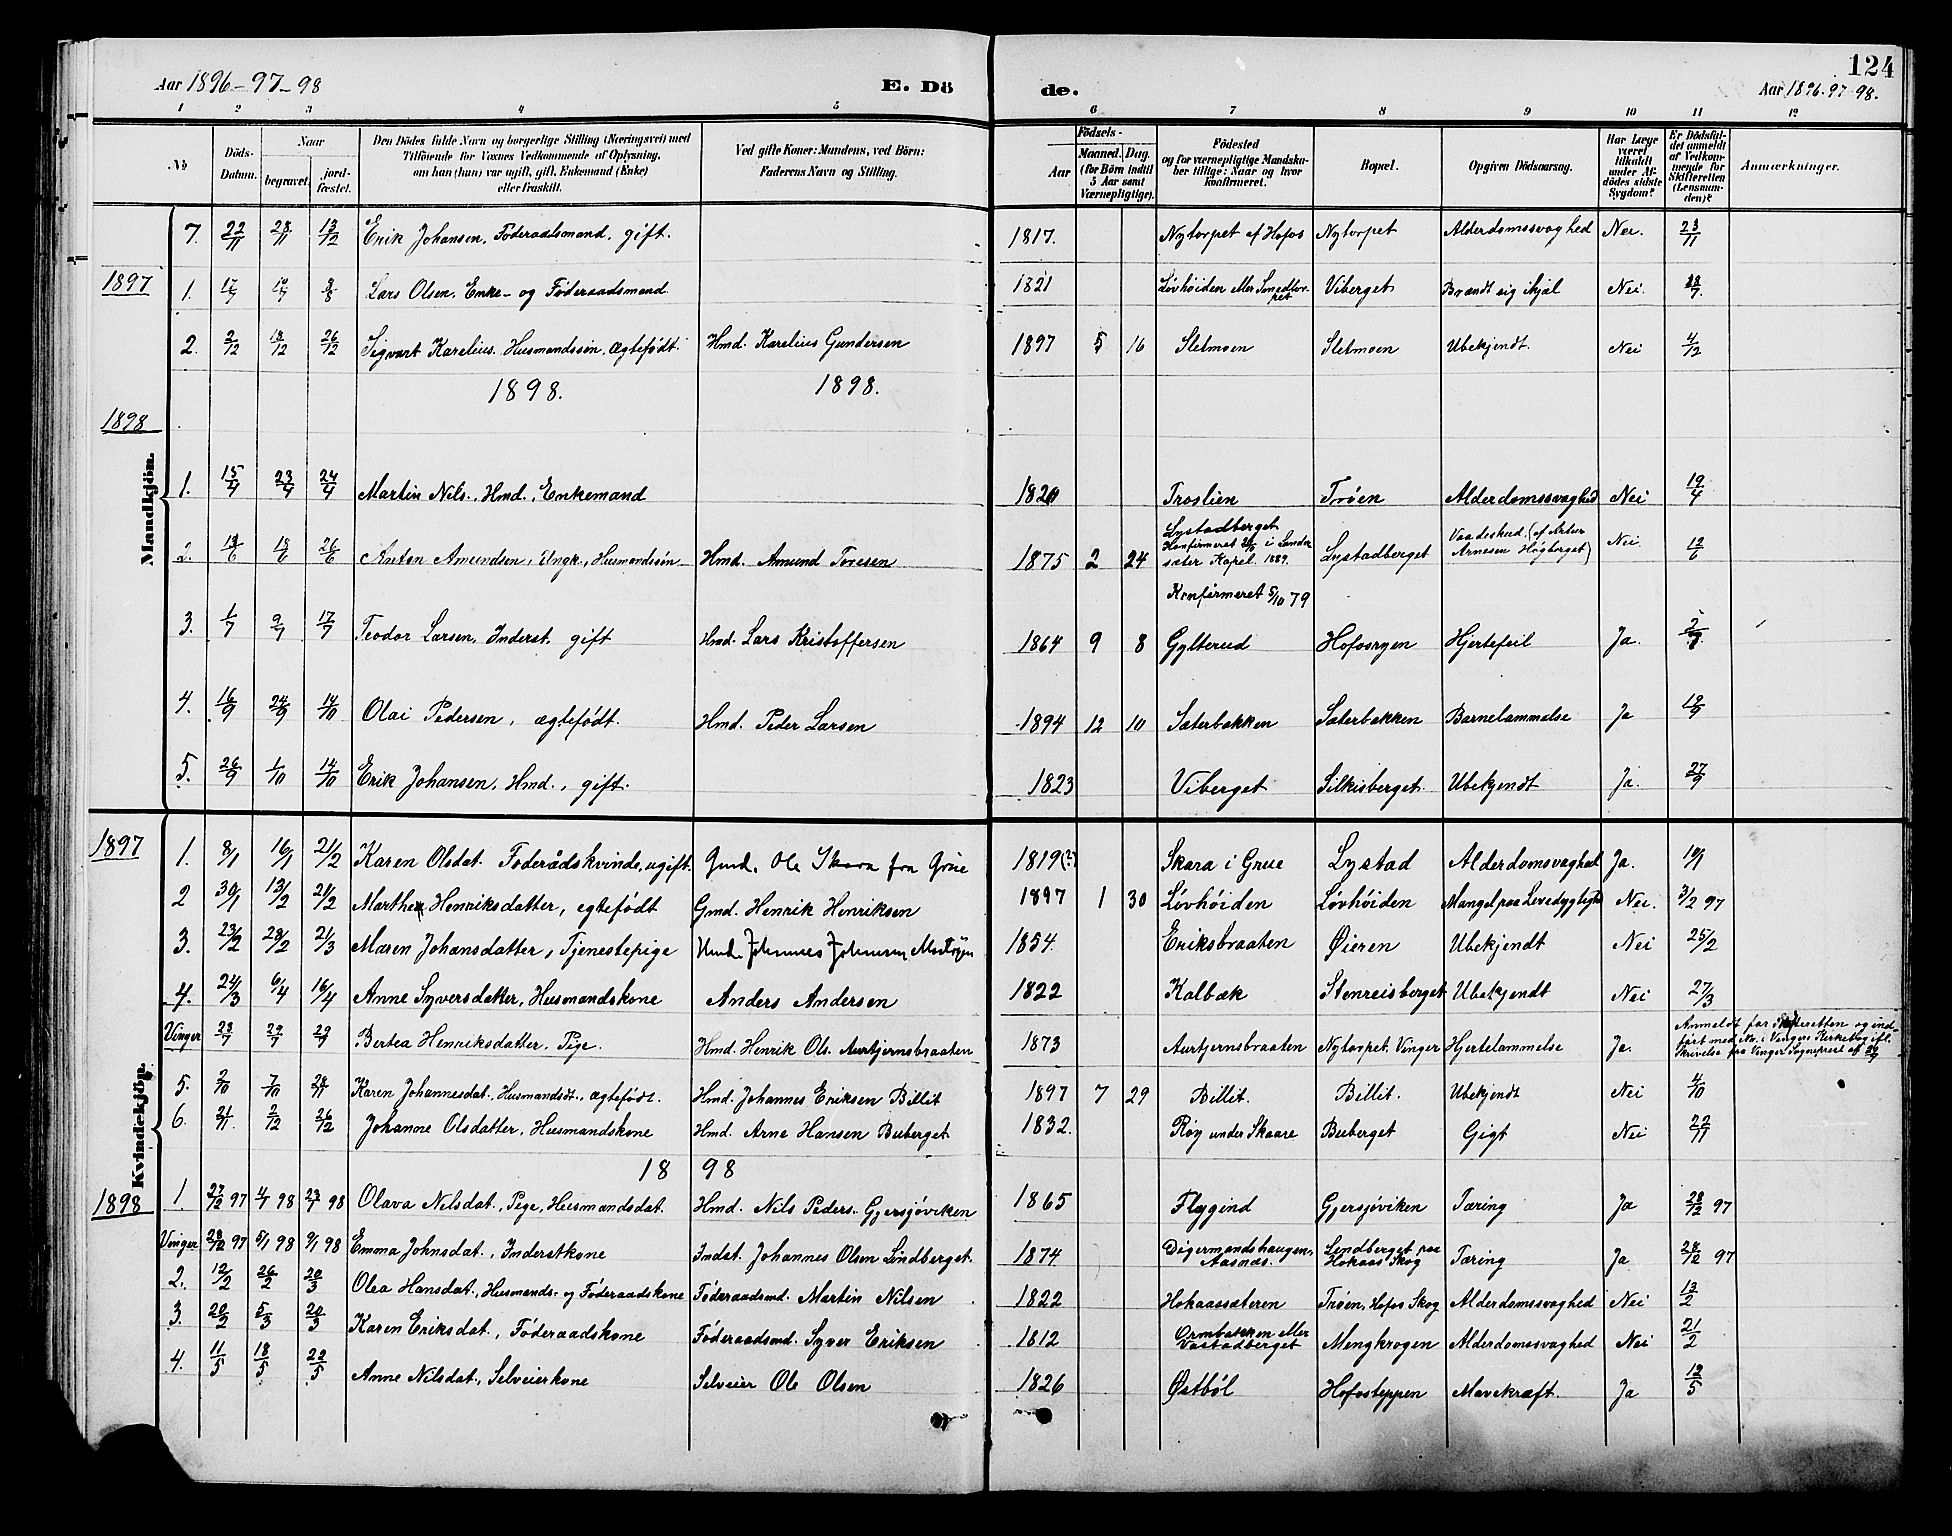 124
Aar 1896-97-98
E. Dö de.
Aar 1896-97-98.
1 2 3 4 5 6 7 8 9 10 11 12
No
Döds-Datum.
Naar
begravet.
jordfæstet.
Den Dödes fulde Navn og borgerlige Stilling (Næringsvei) med
Tilföiende for Voxnes Vedkommende af Oplysning,
om han (hun) var ugift, gift, Enkemand (Enke)
eller fraskilt.
Ved gifte Koner: Mandens, ved Börn:
Faderens Navn og Stilling.
Födsels-
Aar
Maaned. Dag.
(for Börn indtil
5 Aar samt
Værnepligtige).
Födested
og for værnepligtige Mandska-
ber tillige: Naar og hvor
konfirmeret.
Bopæl.
Opgiven Dödsaarsag.
Har Læge
været
tilkaldt
under Af-
dödes sidste
Sygdom?
Er Dödsfal-
det anmeldt
af Vedkom-
mende for
Skifteretten
(Lensman-
den)?
Anmærkninger.
Mandkjön.
7. 22/11 28/11 13/12 Erik Johansen, Föderaadsmand, gift. 1817. Nytorpet af Hofos Nytorpet Alderdomssvaghed Nei. 23/11
1897
1. Lars Olsen, Enke- og Föderaadsmand. 1821 Løvhøiden eller Smedtorpet Viberget Brændt sig ihjäl Nei.
2. 2/12 18/12 26/12 Sigvart Karelius Husmandssøn, Ægtefødt. Hmd. Karelius Gundersen 1897 5 16 Sletmoen Sletmoen Ubekjendt. Nei 4/12
1898. 1898.
1898
1. 15/4 23/4 24/4 Martin Nils., Hmd., Enkemand 1820 Troslien Trøen Alderdomssvaghed Nei 19/4
2. 18/6 26/6 Anton Amundsen, Ungk., Husmandssøn Hmd. Amund Toresen 1875 2 24 Lystadberget Konfirmeret i Sandersæter Kapel 1889. Lystadberget Vaadeskud (af Artur Arnesen Høgberget) Nei. 12/6
3. 1/7 9/7 17/7 Teodor Larsen, Inderst, gift Hmd. Lars Kristoffersen 1864 9 8 Konfirmeret 5/10 79 Gylterud Hofosryen Hjertefeil Ja.
4. 16/9 24/9 14/10 Olai Pedersen, ægtefødt. Hmd. Peder Larsen 1894 12 10 Sæterbakken Sæterbakken Barnelammelse Ja 19/9
5. 26/9 1/10 14/10 Erik Johansen, Hmd., gift. 1823 Viberget Silkisberget. Ubekjendt Ja. 27/9
Kvindekjön.
1897
1. 8/1 16/1 21/2 Karen Olsdat. Føderådskvinde, ugift. Gmd. Ole Skara fra Grue 1819(?) Skara i Grue Lystad Alderdomsvaghed Ja. 10/1
2 30/1 13/2 21/2 Marthe Henriksdatter, egtefødt Gmd. Henrik Henriksen 1897 1 30 Løvhøiden Løvhøiden Mangel paa Levedygtighed Nei. 3/2 97
3. 23/2 28/2 21/3 Maren Johansdatter, Tjenestepige Hmd. Johannes Johansen 1854. Eriksbraaten Øieren Ubekjendt Nei 25/2
4. 24/3 6/4 16/4 Anne Syversdatter, Husmandskone Anders Andersen 1822 Kalbæk Stenreisberget Ubekjendt Nei 27/3
Vinger 23/7 29/7 29/7 Bertea Henriksdatter, Pige. Hmd. Henrik Ols. Aurtjernsbraaten 1873 Aurtjernsbraaten Nytorpet, Vinger Hjertelammelse Ja. Anmeldt for Skifteretten og indført med No. i Vingers Kirkebog ifl. Skrivelse fra Vinger Sognepræst af
5. 2/10 7/10 28/11 Karen Johannesdat., Husmandsdt., ægtefødt. Hmd. Johannes Eriksen Billit 1897 7 29 Billit. Billit. Ubekjendt Nei 4/10
6. 21/11. 2/12 26/12 Johanne Olsdatter, Husmandskone Hmd. Arne Hansen Buberget 1832. Røy under Skaare Buberget Gigt Nei 22/11
18 98
1898
1. 27/12 97 4/1 98 98 Olava Nilsdat., Pige, Husmandsdat. Hmd. Nils Peders. Gjersjøviken 1865 Flygind Gjersjøviken Tæring Ja 28/12 97
Vinger 28/12 97 5/1 98 9/1 98 Emma Johnsdat., Inderstkone Indst. Johannes Olsen Lindberget. 1874 Digermandshaugen, Aasnæs. Lindberget paa Hokaas Skog Tæring Ja 28/12 97
2. 12/2 26/2 20/3 Olea Hansdat., Husmands- og Føderaadskone Føderaadsmd. Martin Nilsen 1822 Hokaassæteren Trøen, Hofos Skog Alderdomssvaghed Nei 13/2
3. 20/2 5/3 20/3 Karen Eriksdat., Føderaadskone Føderaadsmd. Syver Eriksen 1812 Ormbakken eller Vastadberget Mengkrogen Alderdomssvaghed Nei 21/2
4. 11/5 18/5 22/5 Anne Nilsdat., Selveierkone Selveier Ole Olsen 1826 Østbøl Hofosteppen Mavekræft. Ja 12/5